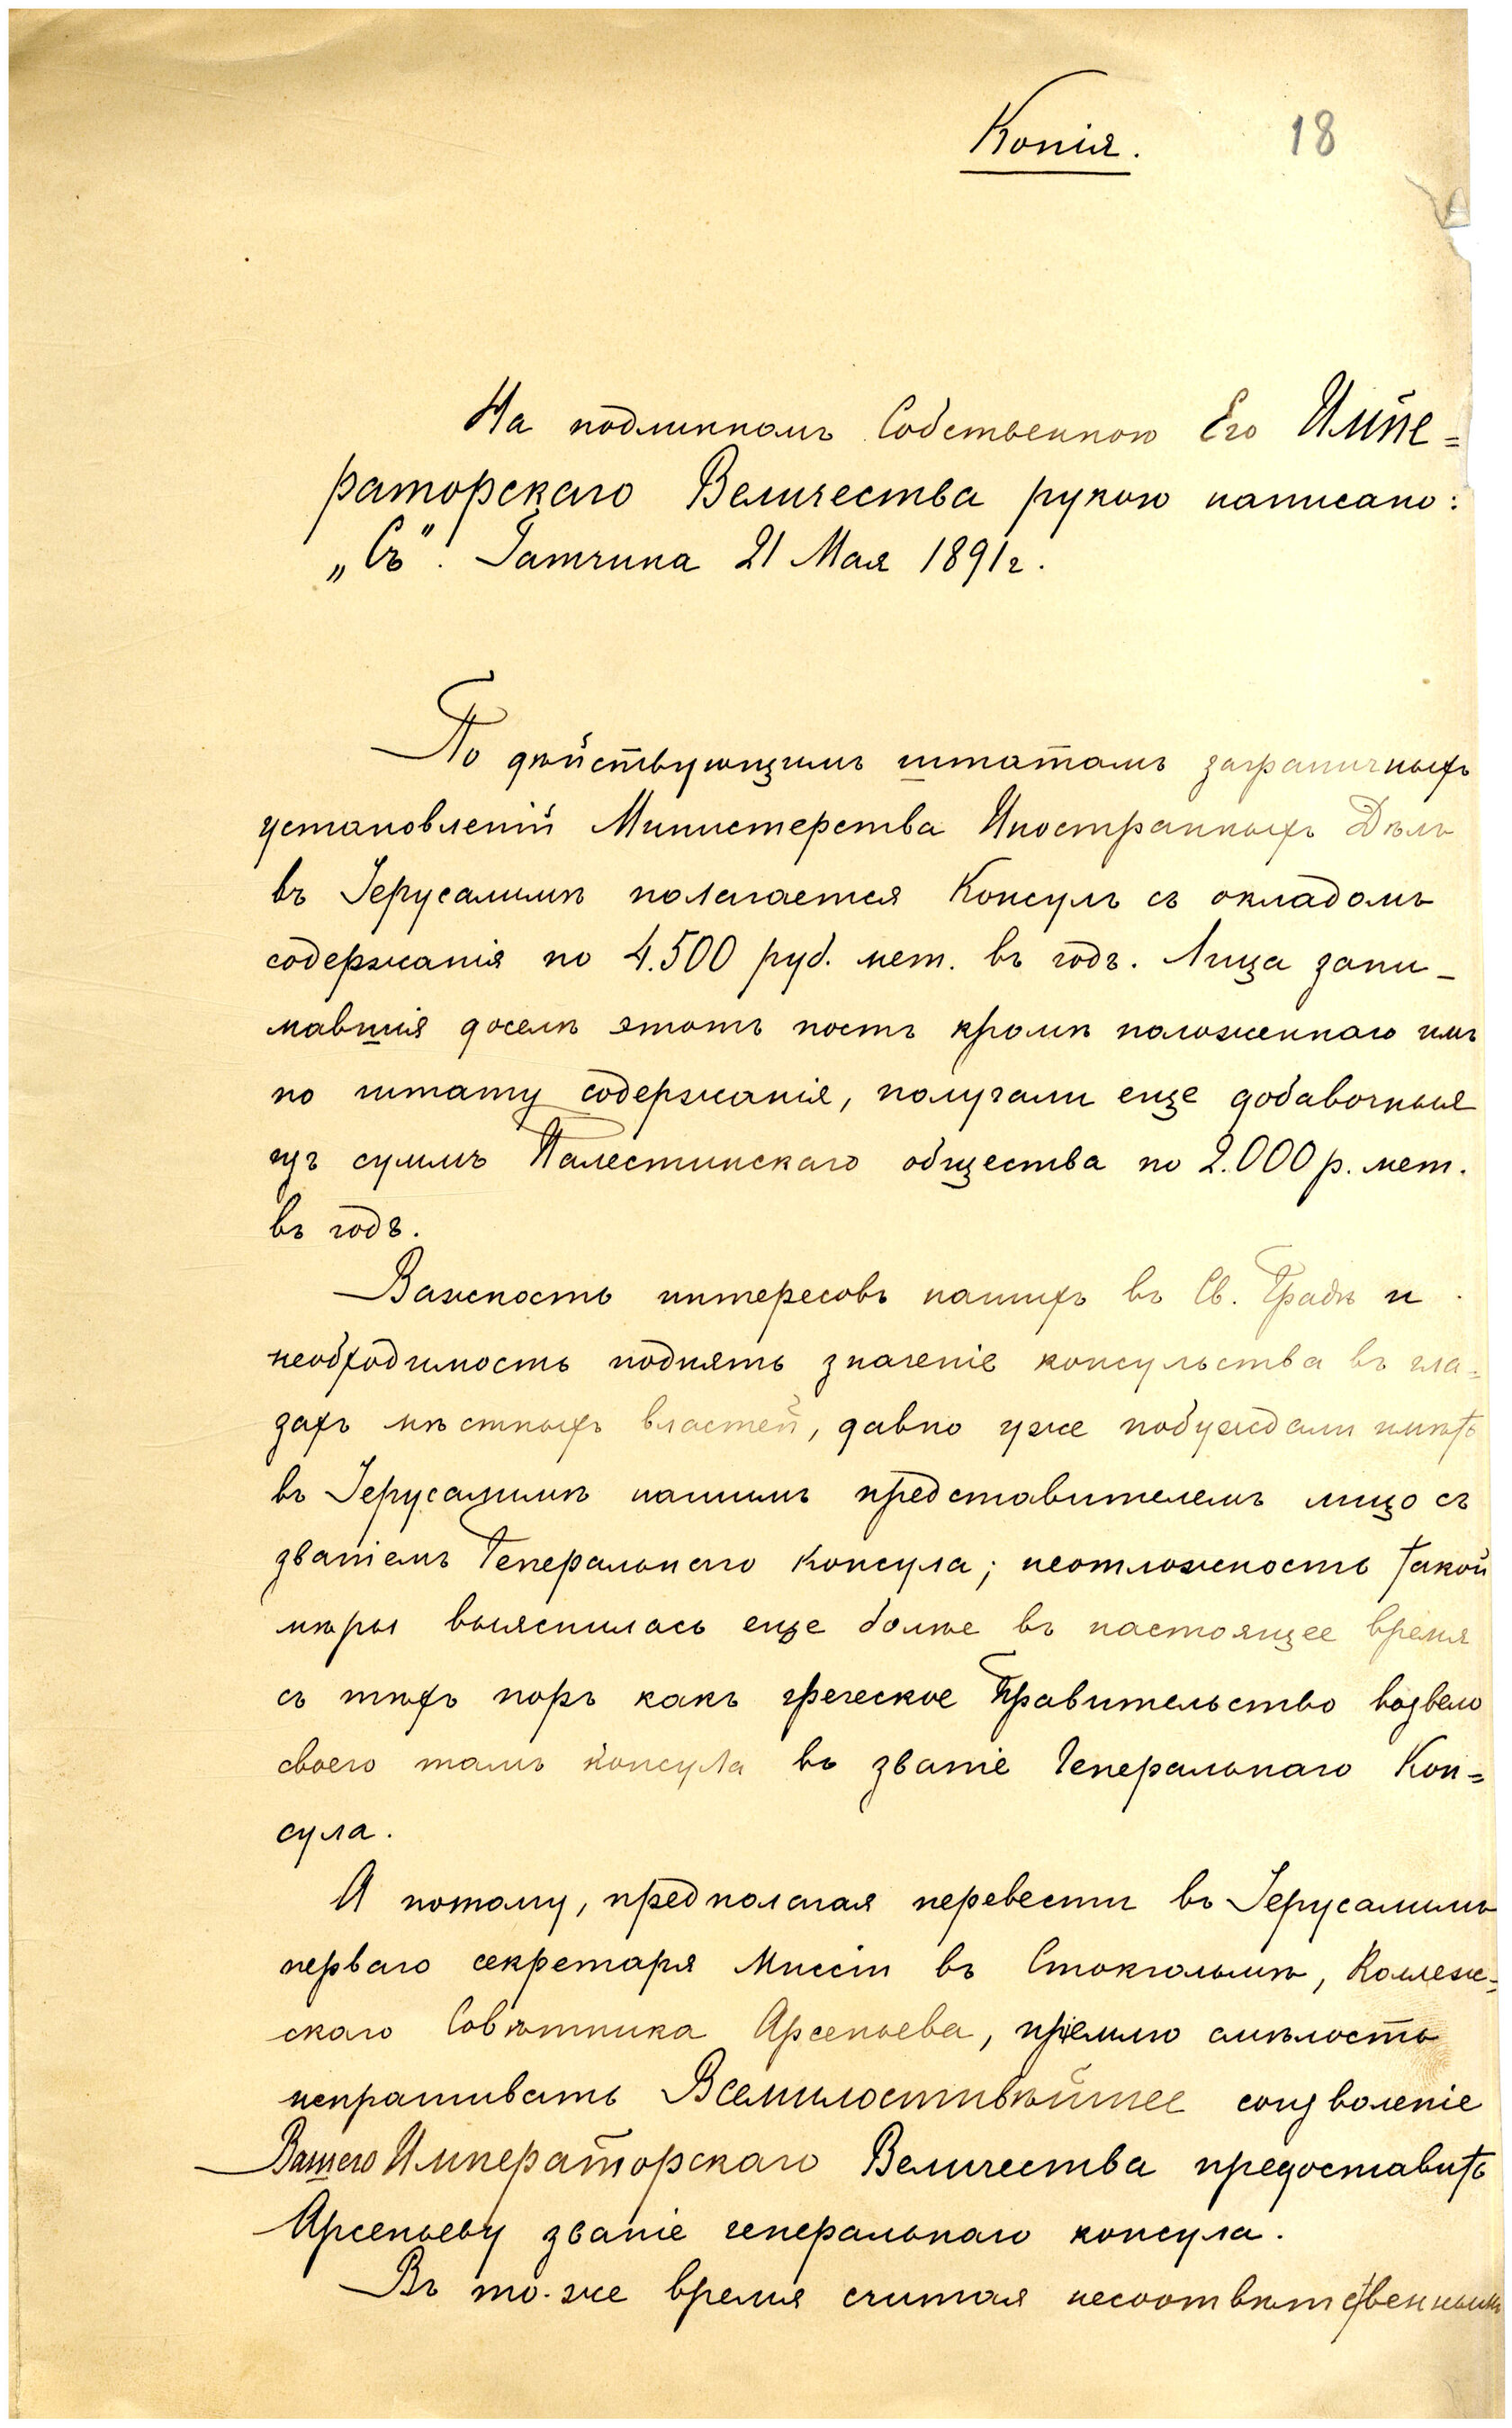 Копія.
18
На подлинномъ Собственною Его Импе=
раторскаго Величества рукою написано:
„Съ". Гатчина 21 Мая 1891 г.
По дѣйствующимъ штатамъ заграничныхъ
установленій Министерства Иностранныхъ Дѣлъ
въ Іерусалимѣ полагается Консулъ съ окладомъ
содержанія по 4.500 руб. мет. въ годъ. Лица зани-
мавшія доселѣ этотъ постъ кромѣ положеннаго имъ
по штату содержанія, получали еще добавочныя
изъ суммъ Палестинскаго общества по 2.000 р. мет.
въ годъ.
Важность интересовъ нашихъ въ Св. Градѣ и
необходимость поднять значеніе консульства въ гла=
захъ мѣстныхъ властей, давно уже побуждали имѣть
въ Іерусалимѣ нашимъ представителемъ лицо съ
званіемъ Генеральнаго Консула; неотложность такой
мѣры выяснилась еще болѣе въ настоящее время
съ тѣхъ поръ какъ греческое Правительство возвело
своего тамъ консула въ званіе Генеральнаго Кон=
сула.
А потому, предполагая перевести въ Іерусалимъ
перваго секретаря Миссіи въ Стокгольмѣ, Коллеж=
скаго Совѣтника Арсеньева, пріемлю смѣлость
испрашивать Всемилостивѣйшее соизволеніе
Вашего Императорскаго Величества предоставить
Арсеньеву званіе генеральнаго консула.
Въ то-же время считая несоотвѣтственнымъ